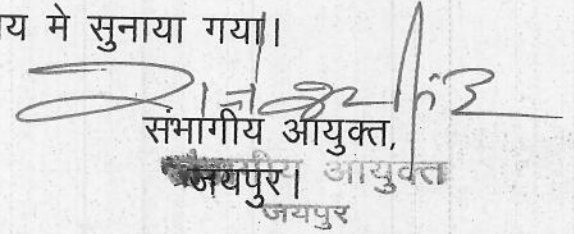 य मे सुनाया गया।
संभागीय आयुक्त,
जयपुर।
आयुक्त
जयपुर